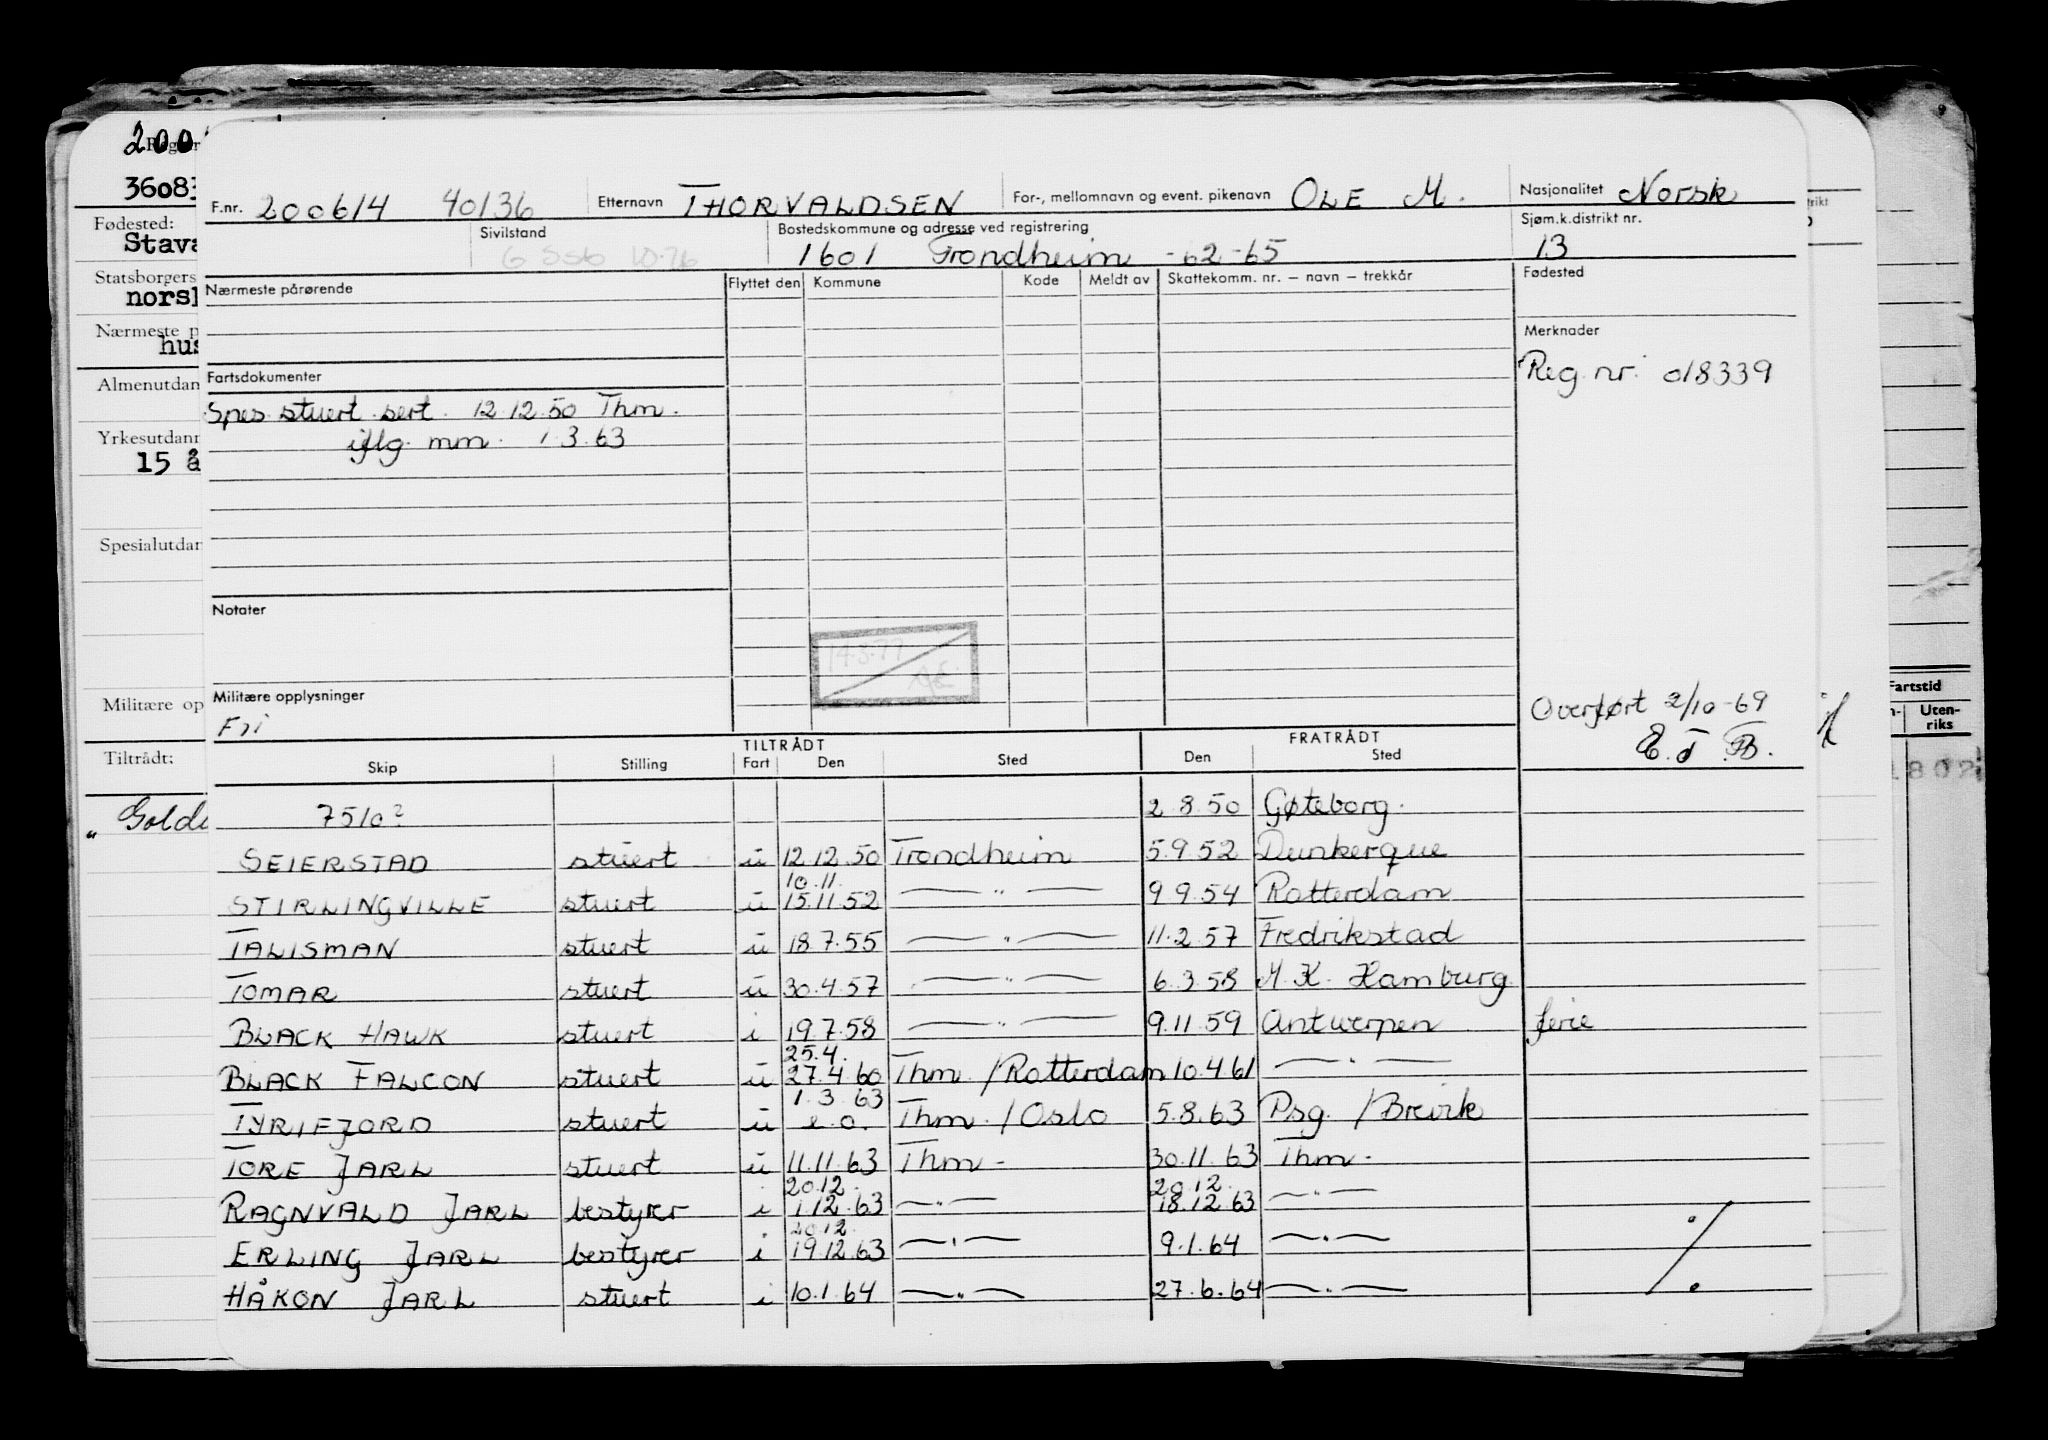 F.nr. 200614 40136 Etternavn THORVALDSEN For-, mellomnavn og event. pikenavn OLE M. Nasjonalitet Norsk
Sivilstand 6 556 10.76 Bostedskommune og adresse ved registrering 1601 Trondheim -62-65 Sjøm.k.distrikt nr. 13
Nærmeste pårørende Flyttet den Kommune Kode Meldt av Skattekomm. nr. – navn – trekkår Fødested
Merknader
Reg. nr. 018339
Fartsdokumenter
Spes stuert sert. 12.12.50 Thm.
iflg. mm. 1.3.63
Notater
14.3.77
Militære opplysninger
Fri
Overført 2/10-69
E. T. B.
TILTRÅDT FRATRÅDT
Skip Stilling Fart Den Sted Den Sted
7510? 2.8.50 Gøteborg.
SEIERSTAD stuert u 12.12.50 Trondheim 5.9.52 Dunkerque
10.11.
STIRLINGVILLE stuert u 15.11.52 — " — 9.9.54 Rotterdam
TALISMAN stuert u 18.7.55 — " — 11.2.57 Fredrikstad
TOMAR stuert u 30.4.57 — " — 6.3.58 M.K. Hamburg
BLACK HAWK stuert i 19.7.58 — " — 9.11.59 Antwerpen ferie
25.4.
BLACK FALCON stuert u 27.4.60 Thm. /Rotterdam 10.4.61 — " —
1.3.63
TYRIFJORD stuert u e.o. Thm. /Oslo 5.8.63 Psg. /Brevik
TORE JARL stuert u 11.11.63 Thm- 30.11.63 Thm-
20.12. 20.12.
RAGNVALD JARL bestyrer i 1.12.63 — " — 18.12.63 — " —
20.12.
ERLING JARL bestyrer i 19.12.63 — " — 9.1.64 — " —
HÅKON JARL stuert i 10.1.64 — " — 27.6.64 — " —
200
3608
Fødested:
Stava
Statsborgers
nors
Nærmeste p
hus
Almenutdan
Yrkesutdann
15 å
Spesialutdan
Militære op
Tiltrådt:
" Golde
Fartstid
Uten-
riks